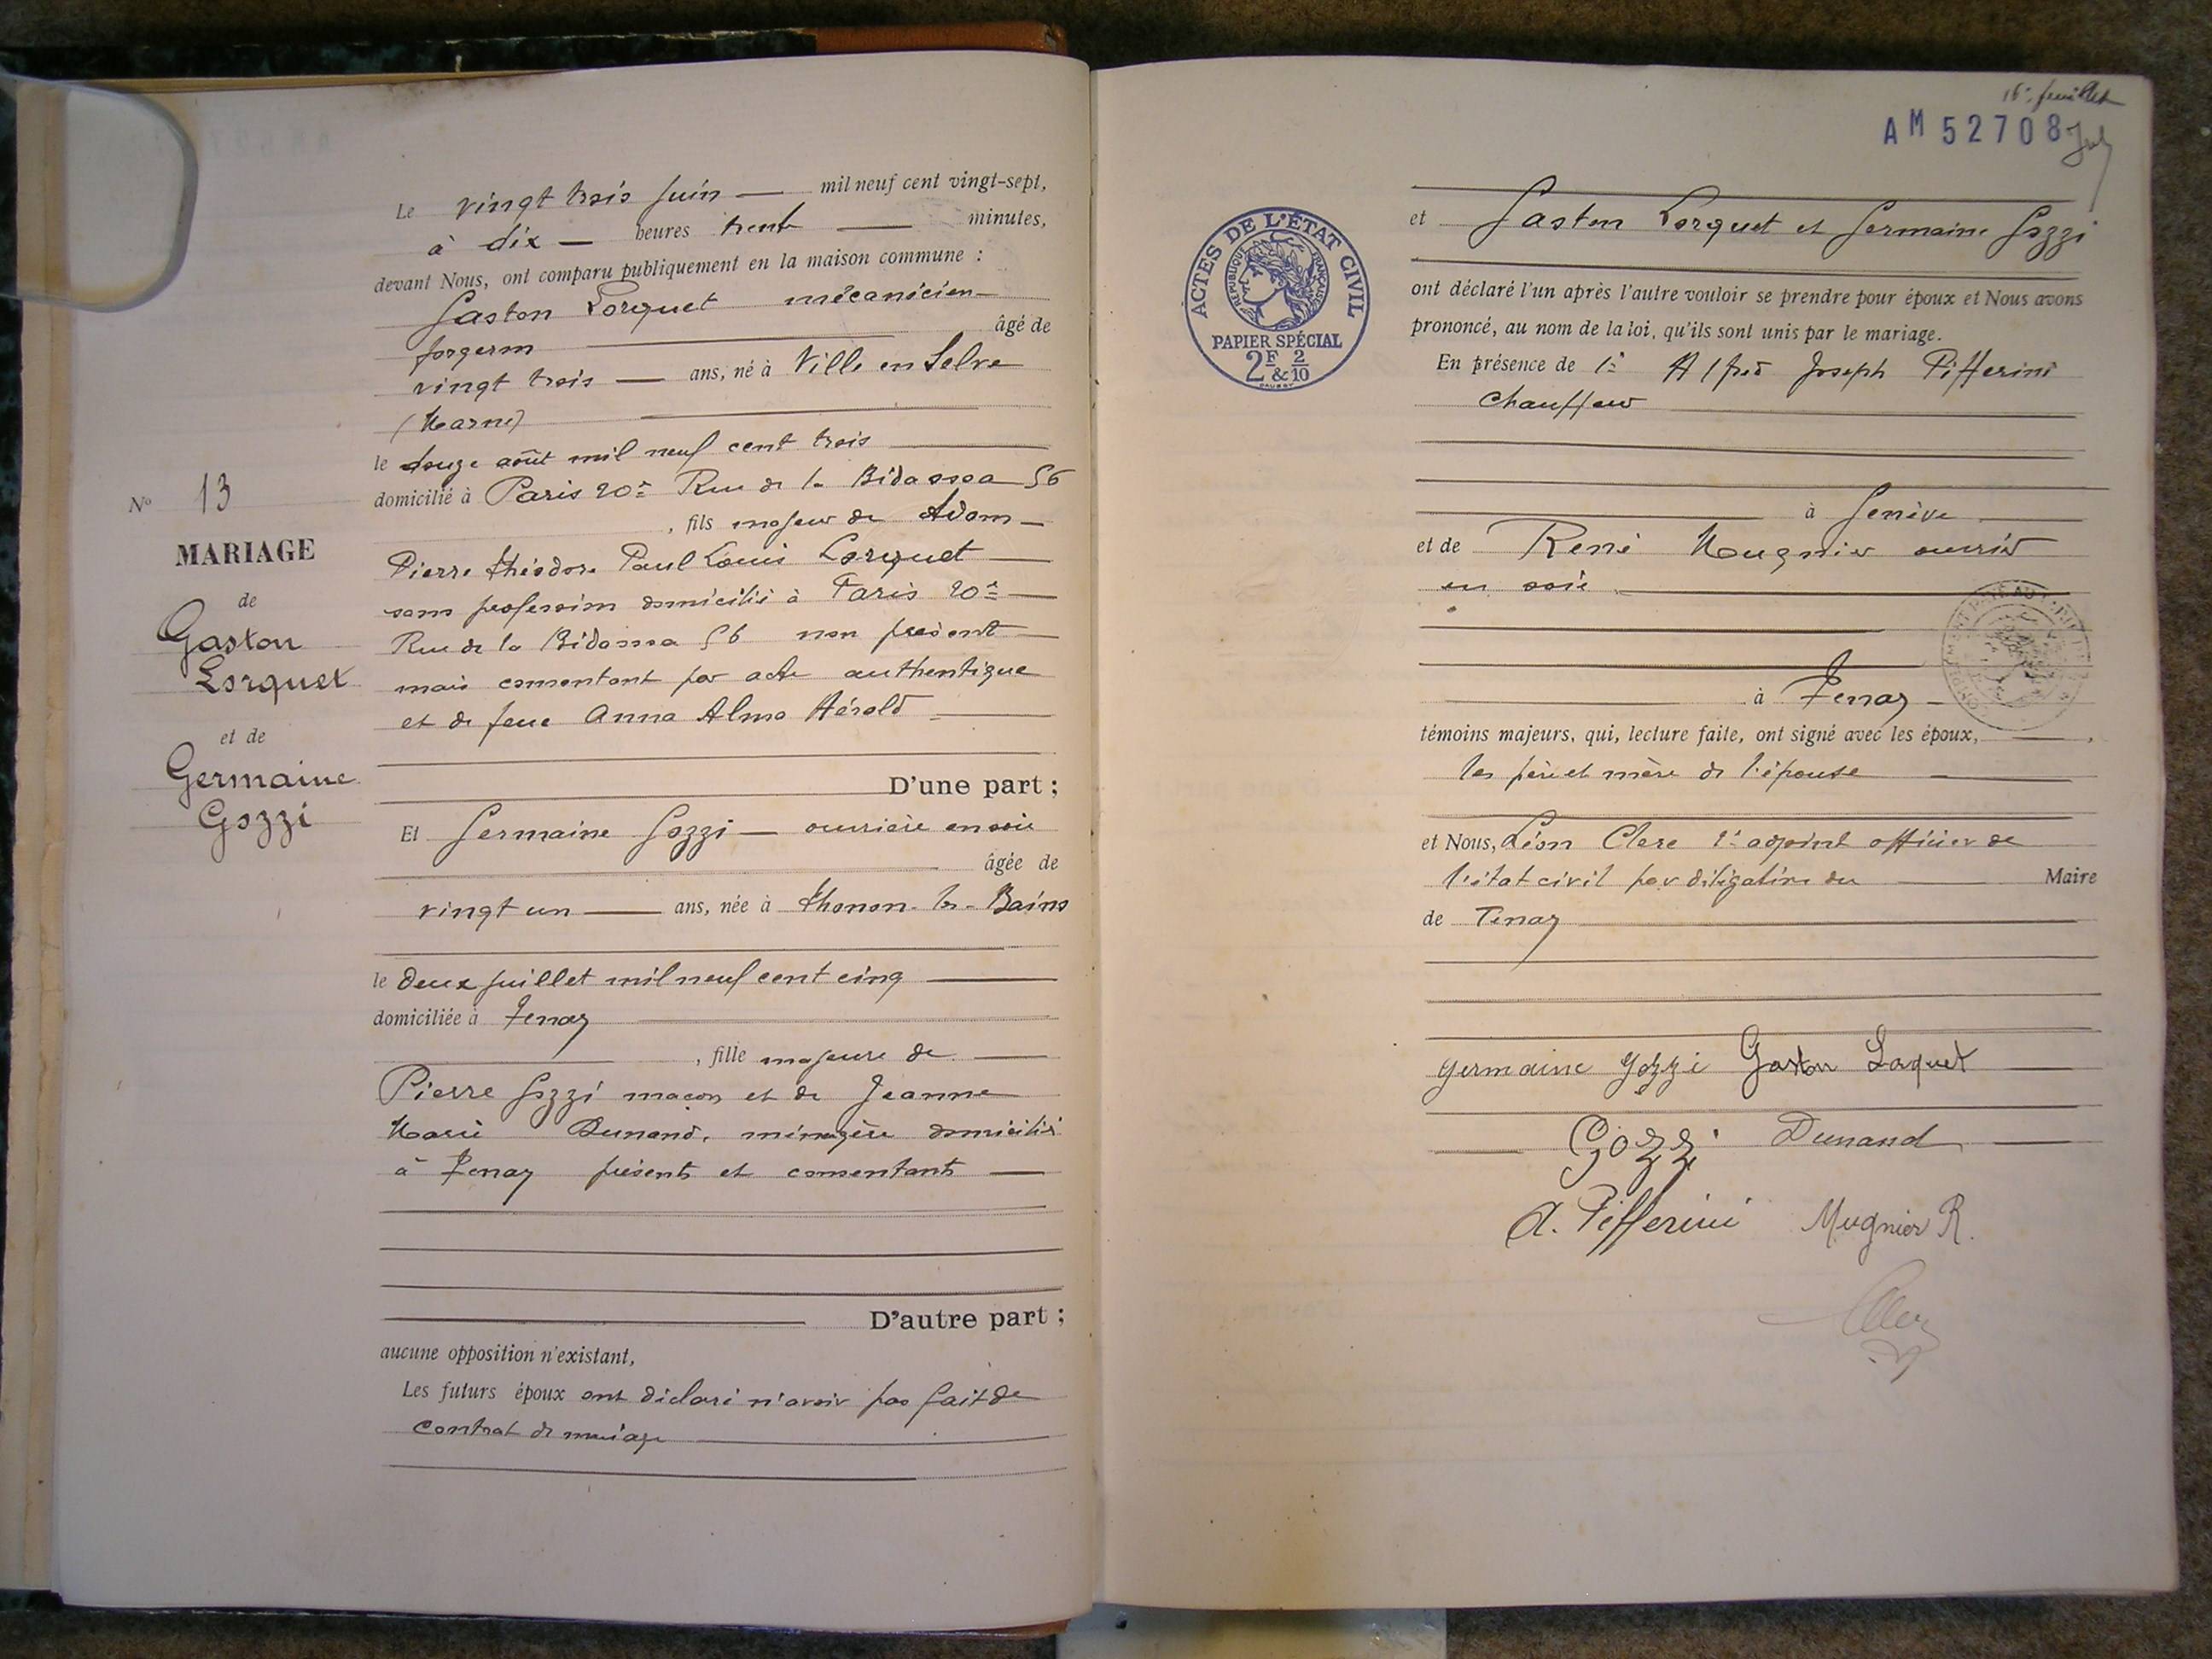 Le vingt trois juin mil neuf cent vingt-sept,
à dix heures trente minutes,
devant Nous, ont comparu publiquement en la maison commune :
Gaston Lorquet mécanicien
forgeron âgé de
vingt trois ans, né à Ville en Selve
(Marne)
le douze août mil neuf cent trois
domicilié à Paris 20e Rue de la Bidassoa 56
, fils majeur de Adam
Pierre Théodore Paul Louis Lorquet
sans profession domicilié à Paris 20e
Rue de la Bidassoa 56 non présent
mais consentant par acte authentique
et de feue Anna Alma Hérold
D'une part ;
Et Germaine Gozzi ouvrière en soie
âgée de
vingt un ans, née à Thonon-les-Bains
le deux juillet mil neuf cent cinq
domiciliée à Tenay
, fille majeure de
Pierre Gozzi maçon et de Jeanne
Marie Dunand, ménagère domiciliés
à Tenay présents et consentants
D'autre part ;
aucune opposition n'existant,
Les futurs époux ont déclaré n'avoir pas fait de
contrat de mariage
No 13
MARIAGE
de
Gaston
Lorquet
et de
Germaine
Gozzi
16e feuillet
AM 52708
ACTES DE L'ÉTAT CIVIL
RÉPUBLIQUE FRANÇAISE
PAPIER SPÉCIAL
2F & 2/10
et Gaston Lorquet et Germaine Gozzi
ont déclaré l'un après l'autre vouloir se prendre pour époux et Nous avons
prononcé, au nom de la loi, qu'ils sont unis par le mariage.
En présence de 1° Alfred Joseph Pifferini
chauffeur
à Genève
et de René Mugnier ouvrier
en soie
à Tenay
témoins majeurs, qui, lecture faite, ont signé avec les époux,
les père et mère de l'épouse
et Nous, Léon Clerc 1er adjoint officier de
l'état civil par délégation du Maire
de Tenay
Germaine Gozzi Gaston Lorquet
Gozzi Dunand
A. Pifferini Mugnier R.